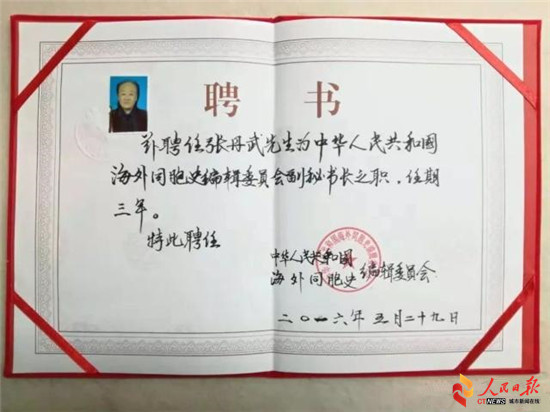 聘 书
兹聘任张丹武先生为中华人民共和國
海外同胞史编辑委员会副秘书长之职，任期
三年。
特此聘任
中华人民共和國
海外同胞史编辑委员会
二〇一六年五月二十九日
人民日报
CTNEWS 城市新闻在线